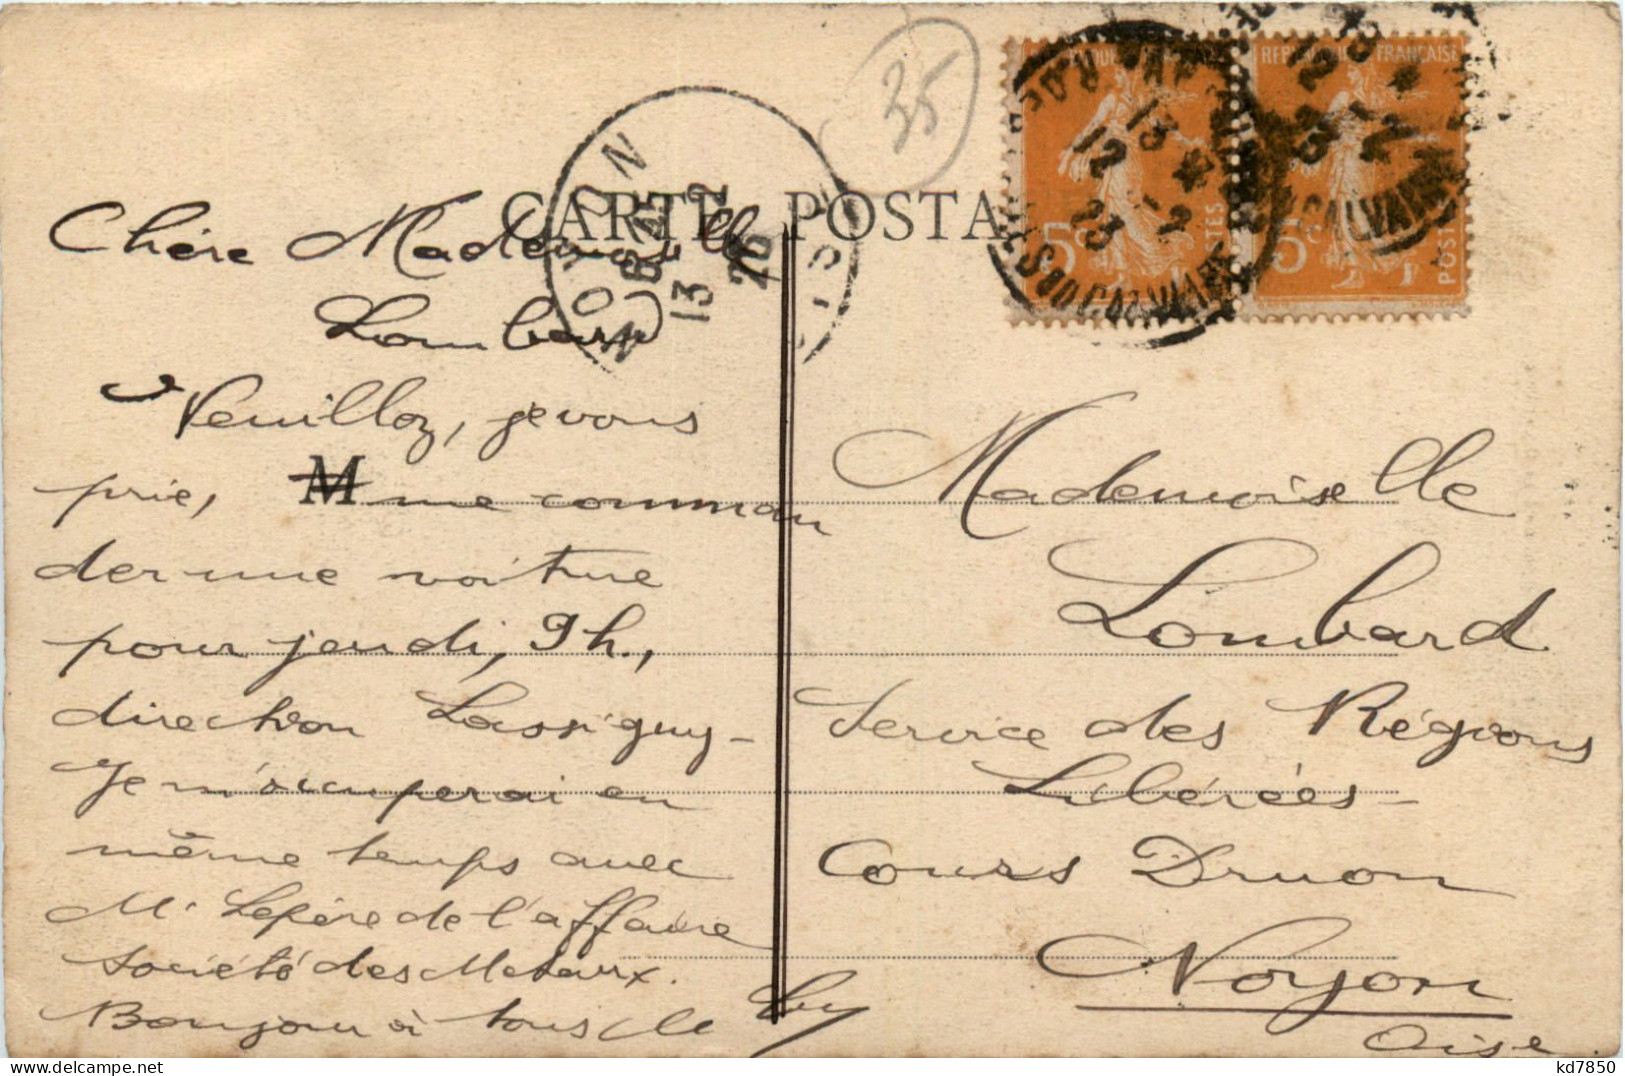 35
CARTE POSTA
REPUBLIQUE FRANÇAISE
5c
5c
POSTES
POSTES
12
13
23
NOYON
13
Chère Mademoiselle
Lombard
Veuillez, je vous
prie, M me comman
der une voiture
pour jeudi, 9h.,
direction Lassigny-
Je m'occuperai en
même temps avec
Mr Lepère de l'affaire
Société des Metaux.
Bonjour à tous
Mademoiselle
Lombard
Service des Régions
Libérées-
Cours Druon
Noyon
Oise.
kd7850